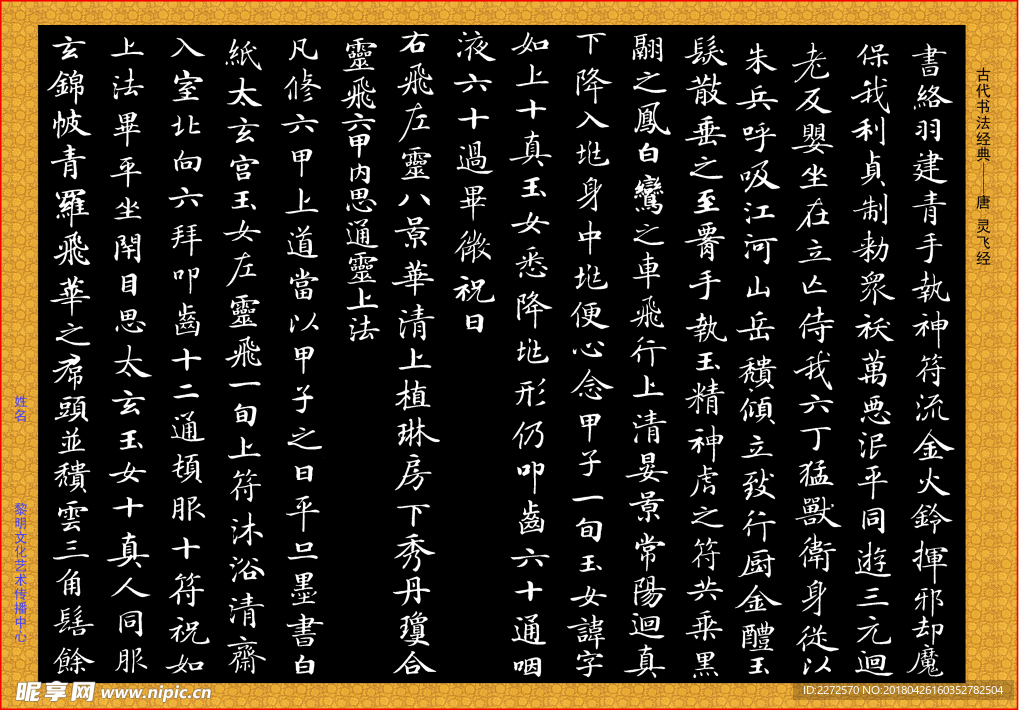 古代书法经典——唐 灵飞经
書絡羽建青手執神符流金火鈴揮邪却魔
保我利貞制勑衆祅萬惡泯平同遊三元迴
老反嬰坐在立亾侍我六丁猛獸衛身従以
朱兵呼吸江河山岳穨傾立致行厨金醴玉
髮散垂之至𦝫手執玉精神虎之符共乗黑
翮之鳳白鸞之車飛行上清晏景常陽迴真
下降入𡉏身中𡉏便心念甲子一旬玉女諱字
如上十真玉女悉降𡉏形仍叩齒六十通咽
液六十過畢微祝曰
右飛左靈八景華清上植琳房下秀丹瓊合
靈飛六甲内思通靈上法
凡修六甲上道當以甲子之日平旦墨書白
紙太玄宫玉女左靈飛一旬上符沐浴清齋
入室北向六拜叩齒十二通頓服十符祝如
上法畢平坐閇目思太玄玉女十真人同服
玄錦帔青羅飛華之帬頭並穨雲三角髻餘
姓名
黎明文化艺术传播中心
昵享网 www.nipic.cn
ID:2272570 NO:20180426160352782504